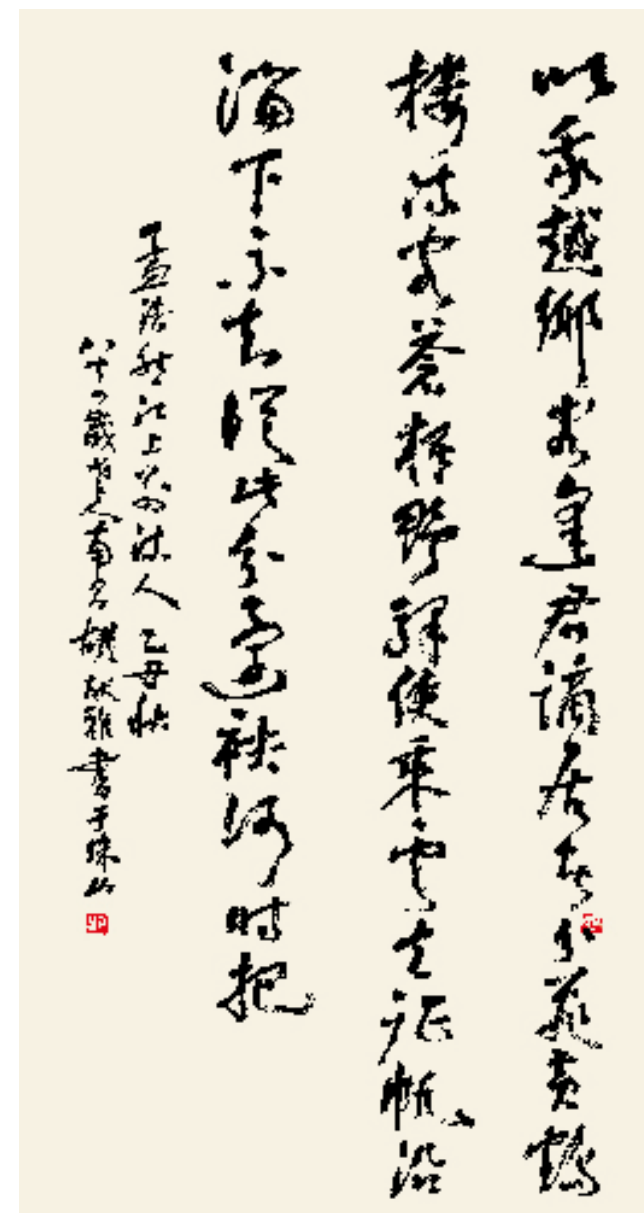 以我越鄉客逢君謫居者分飛黃鶴
樓流蒼梧野驛使乘雲去征帆沿
溜下不知從此分還袂何时把
孟浩然江上別流人 乙丑秋
八十四歲老人南昌胡献雅書于珠山